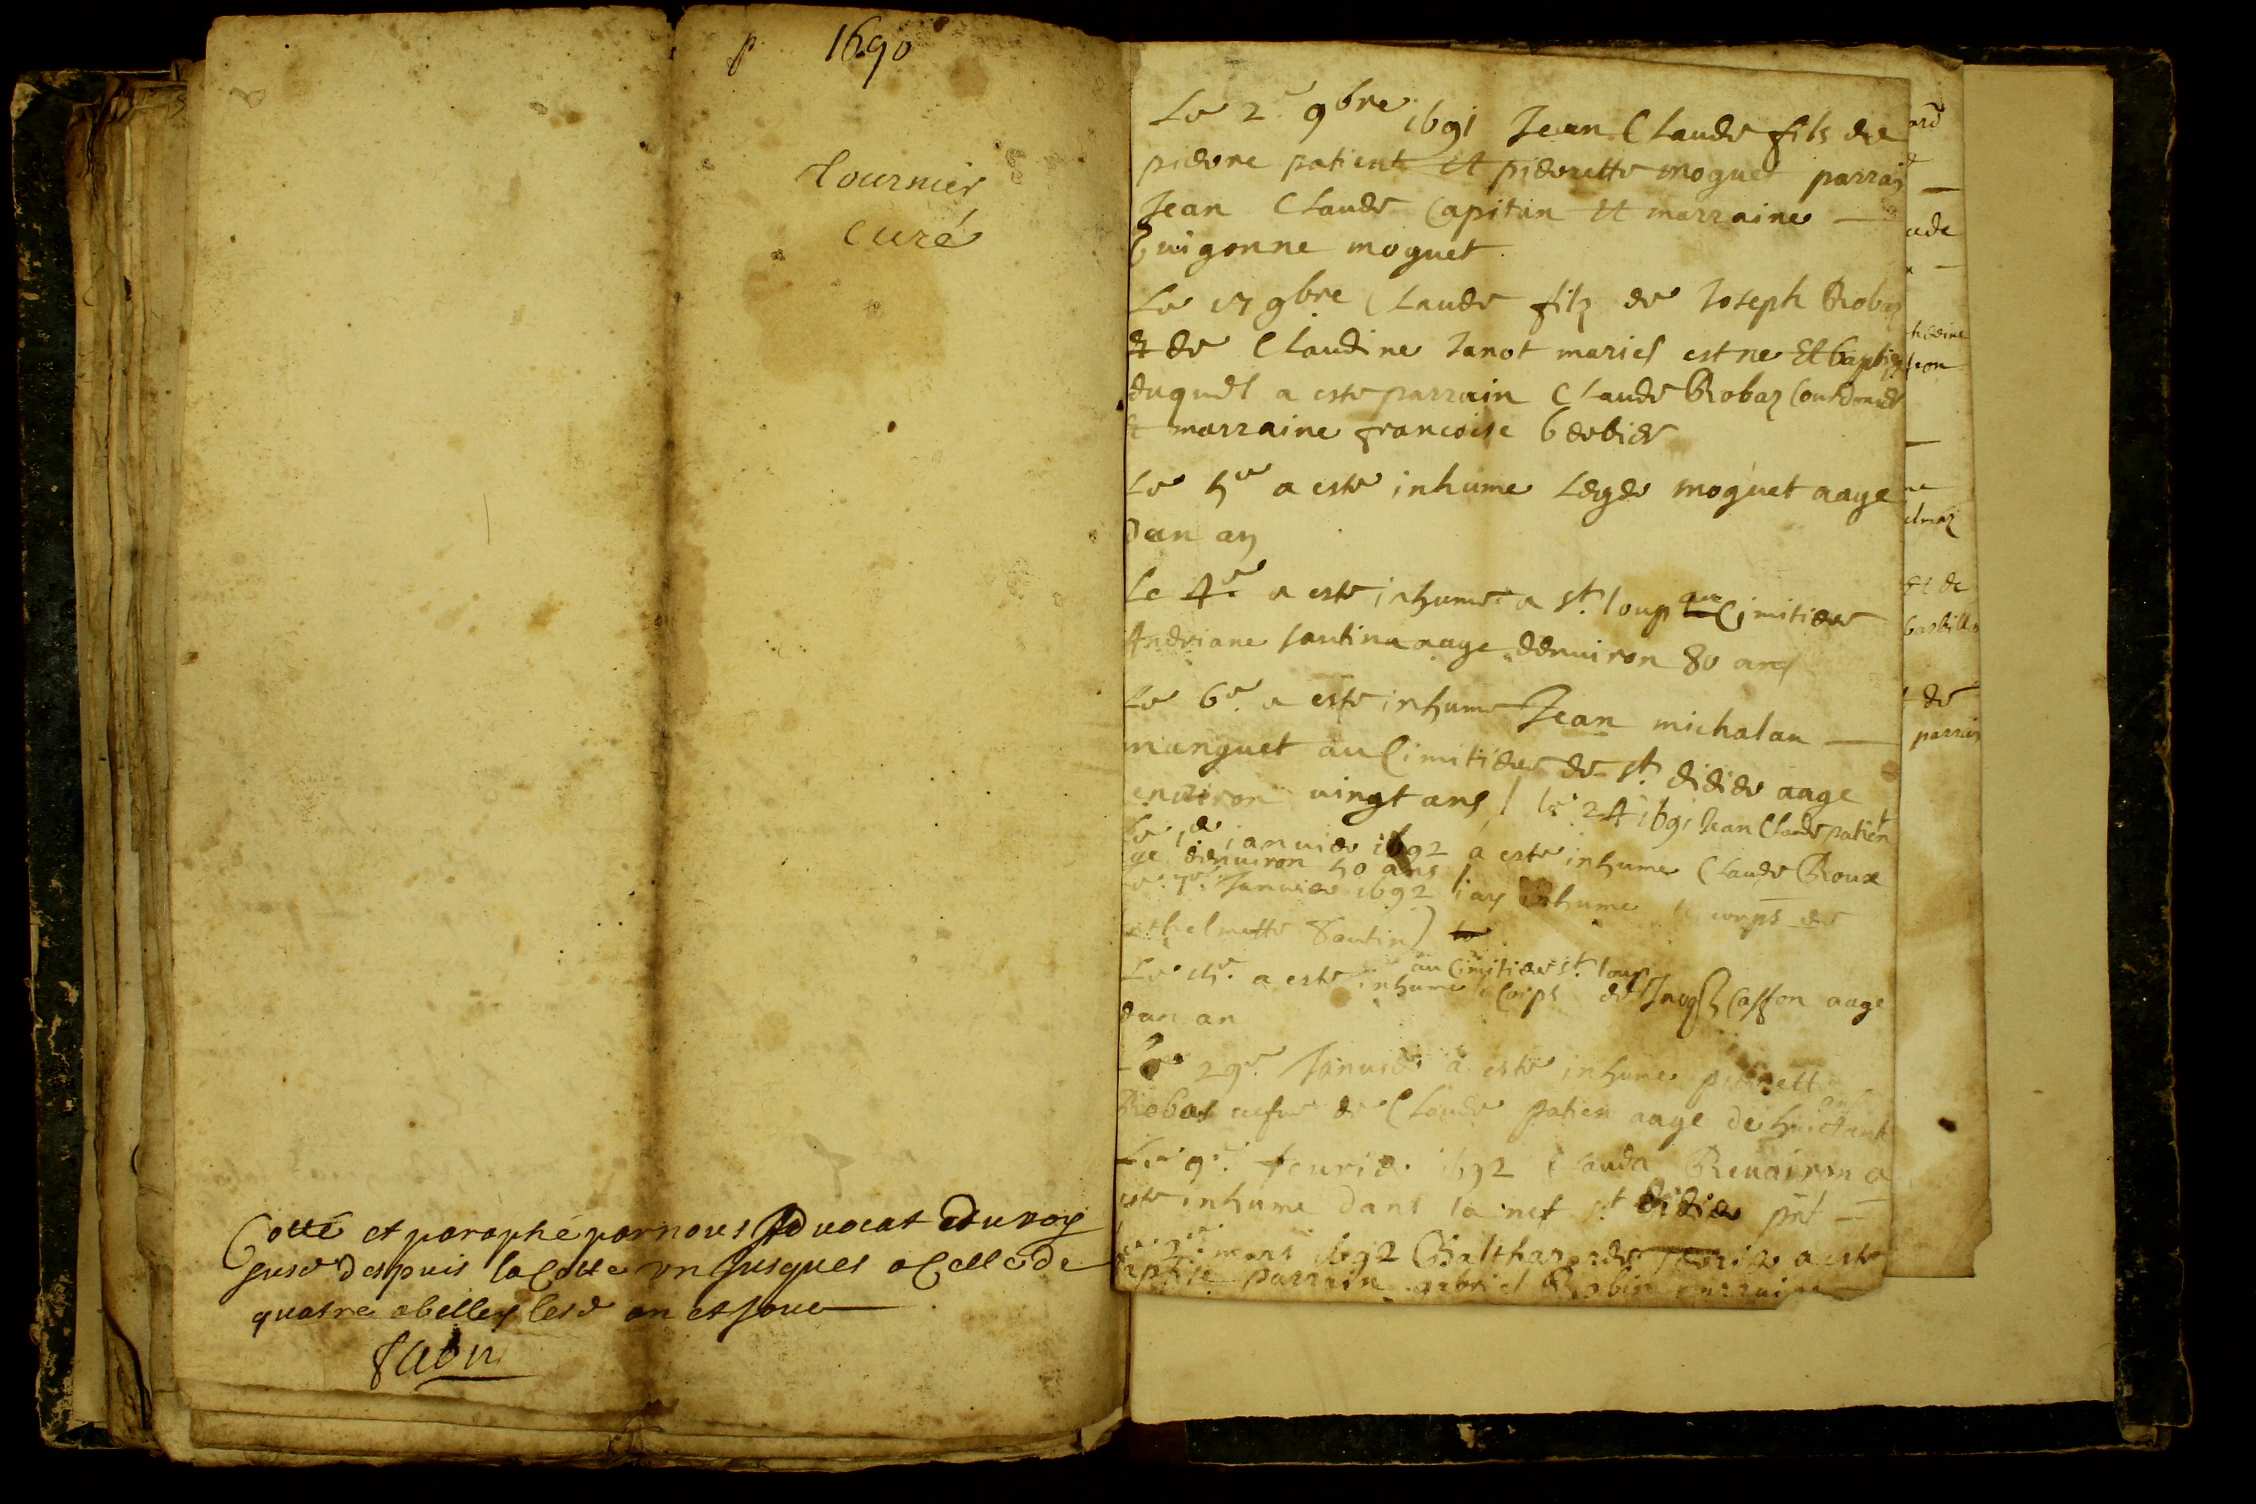 p 1690
Tournier
Curé
Cotté et paraphé par nous Advocat du roy
susd despuis la Cotte un jusques a Celle de
quatre a belley lesd an et jour
Le 2e 9bre 1691 Jean Claude fils de
pierre patient et pierrette moguet parrai
Jean Claude Capitan et marraine
Guigonne moguet
Le 17 9bre Claude filz de Joseph Robaz
et de Claudine Janot maries est ne Et baptiz
duquel a este parrain Claude Robaz
et marraine francoise berbier
Le 5e a este inhume Leger moguet aage
dun an
Le 4e a este inhume a st loup au Cimitier
Andriane santina aage denviron 80 ans
Le 6e a este inhume Jean michalan
manguet au Cimitier de st didier aage
environ vingt ans / le 24 1691 Jean Claude patient
Le janvier 1692 a este inhume Claude Roux
ge denviron 50 ans
Janvier 1692 jay inhume le corps de
Santin
Le a este inhume le Corps de Caston aage
au Cimitier st loup
dun an
Le 29e Janvier a este inhume pierrette
Robas vefve de Claude Patien aage de
Le 9e fevrier 1692 Clauda Renairon a
este inhume dans la nef st didier pnt
mars 1692 Balthazarde a este
baptise parrain gabriel Robin marraine
ard
ude
hedine
eon
ne
elmaz
Et de
barbill
de
parrain